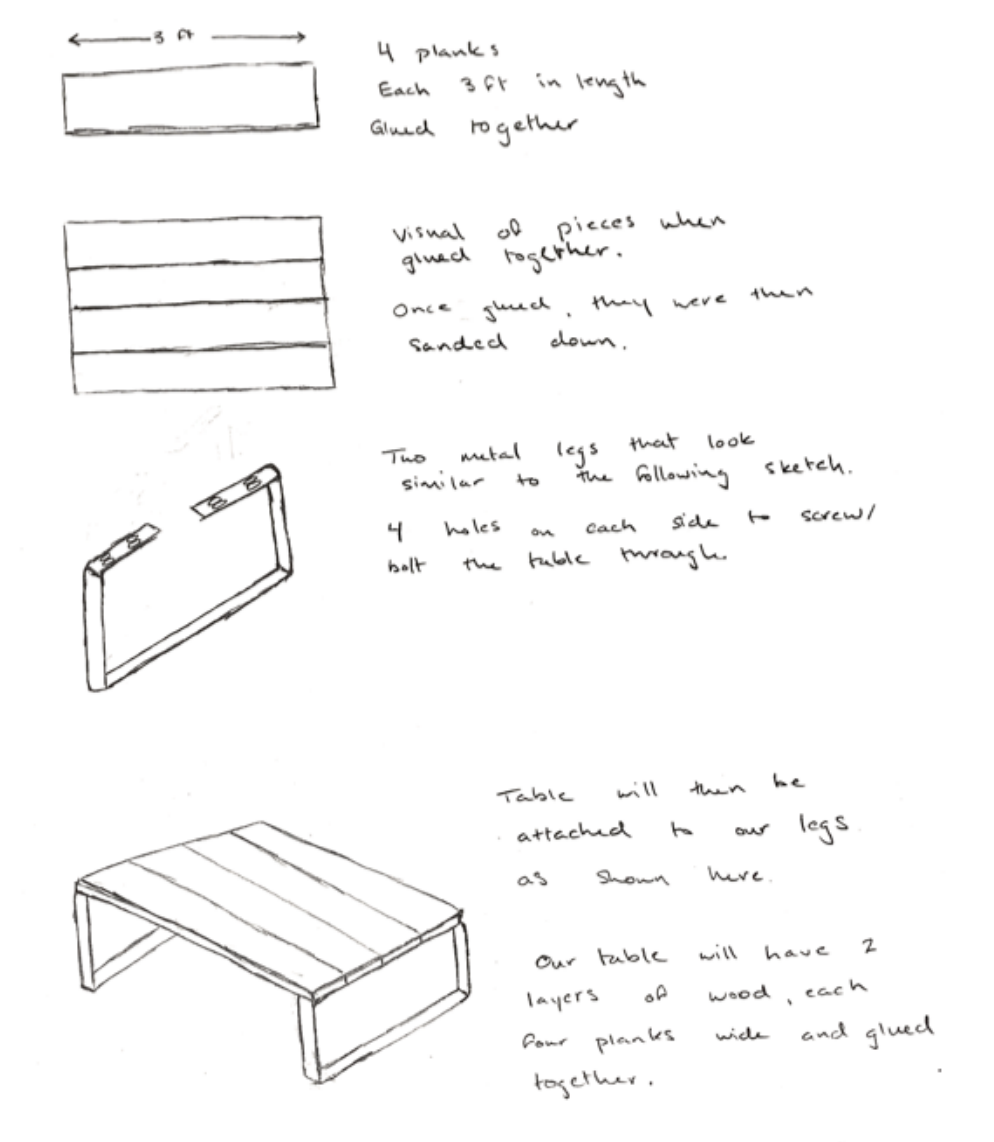 3 ft
4 planks
Each 3 ft in length
Glued together
Visual of pieces when
glued together.
Once glued, they were then
sanded down.
Two metal legs that look
similar to the following sketch.
4 holes on each side to screw/
bolt the table through.
Table will then be
attached to our legs
as shown here.
Our table will have 2
layers of wood, each
four planks wide and glued
together.